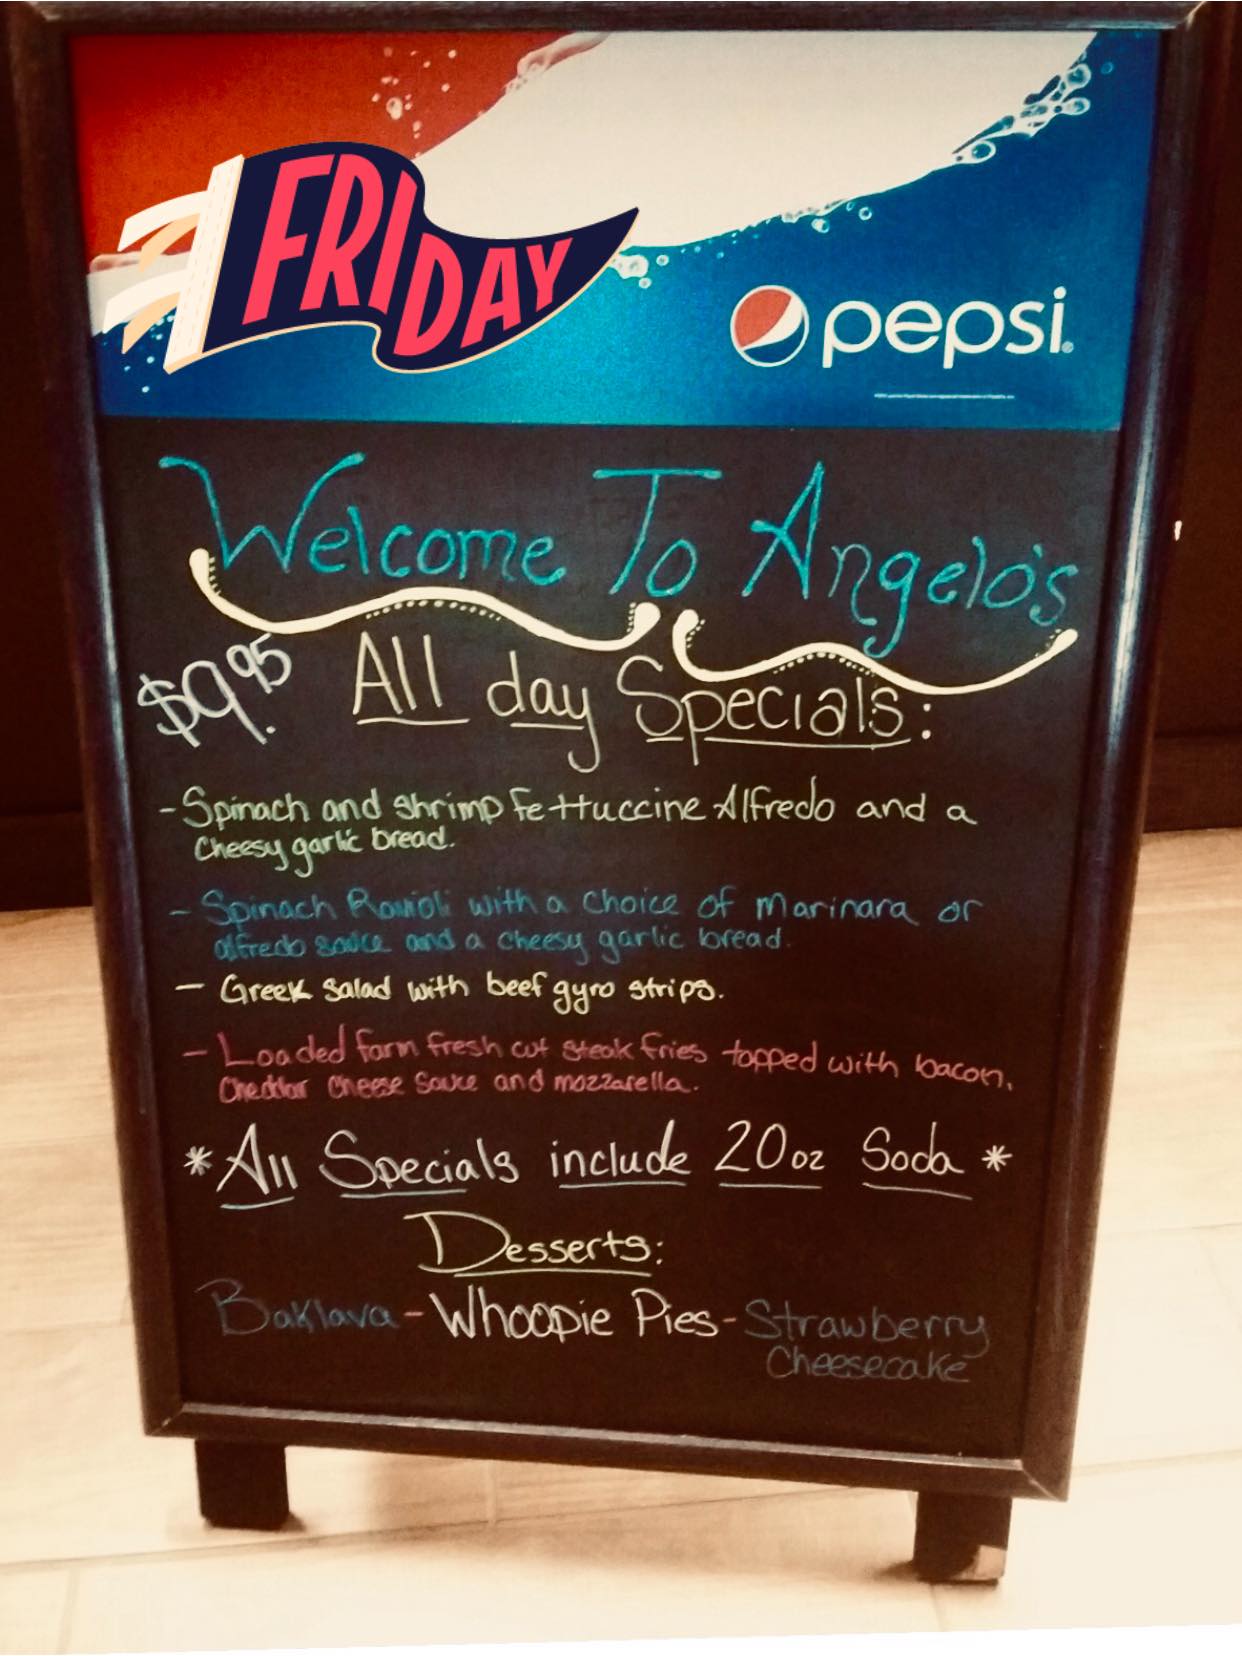 FRIDAY
pepsi®
Welcome To Angelo's
$9.95 All day Specials:
- Spinach and shrimp fettuccine Alfredo and a
cheesy garlic bread.
- Spinach Ravioli with a choice of marinara or
alfredo sauce and a cheesy garlic bread.
- Greek salad with beef gyro strips.
- Loaded farm fresh cut steak fries topped with bacon,
Cheddar cheese sauce and mozzarella.
* All Specials include 20oz Soda *
Desserts:
Baklava - Whoopie Pies - Strawberry
Cheesecake